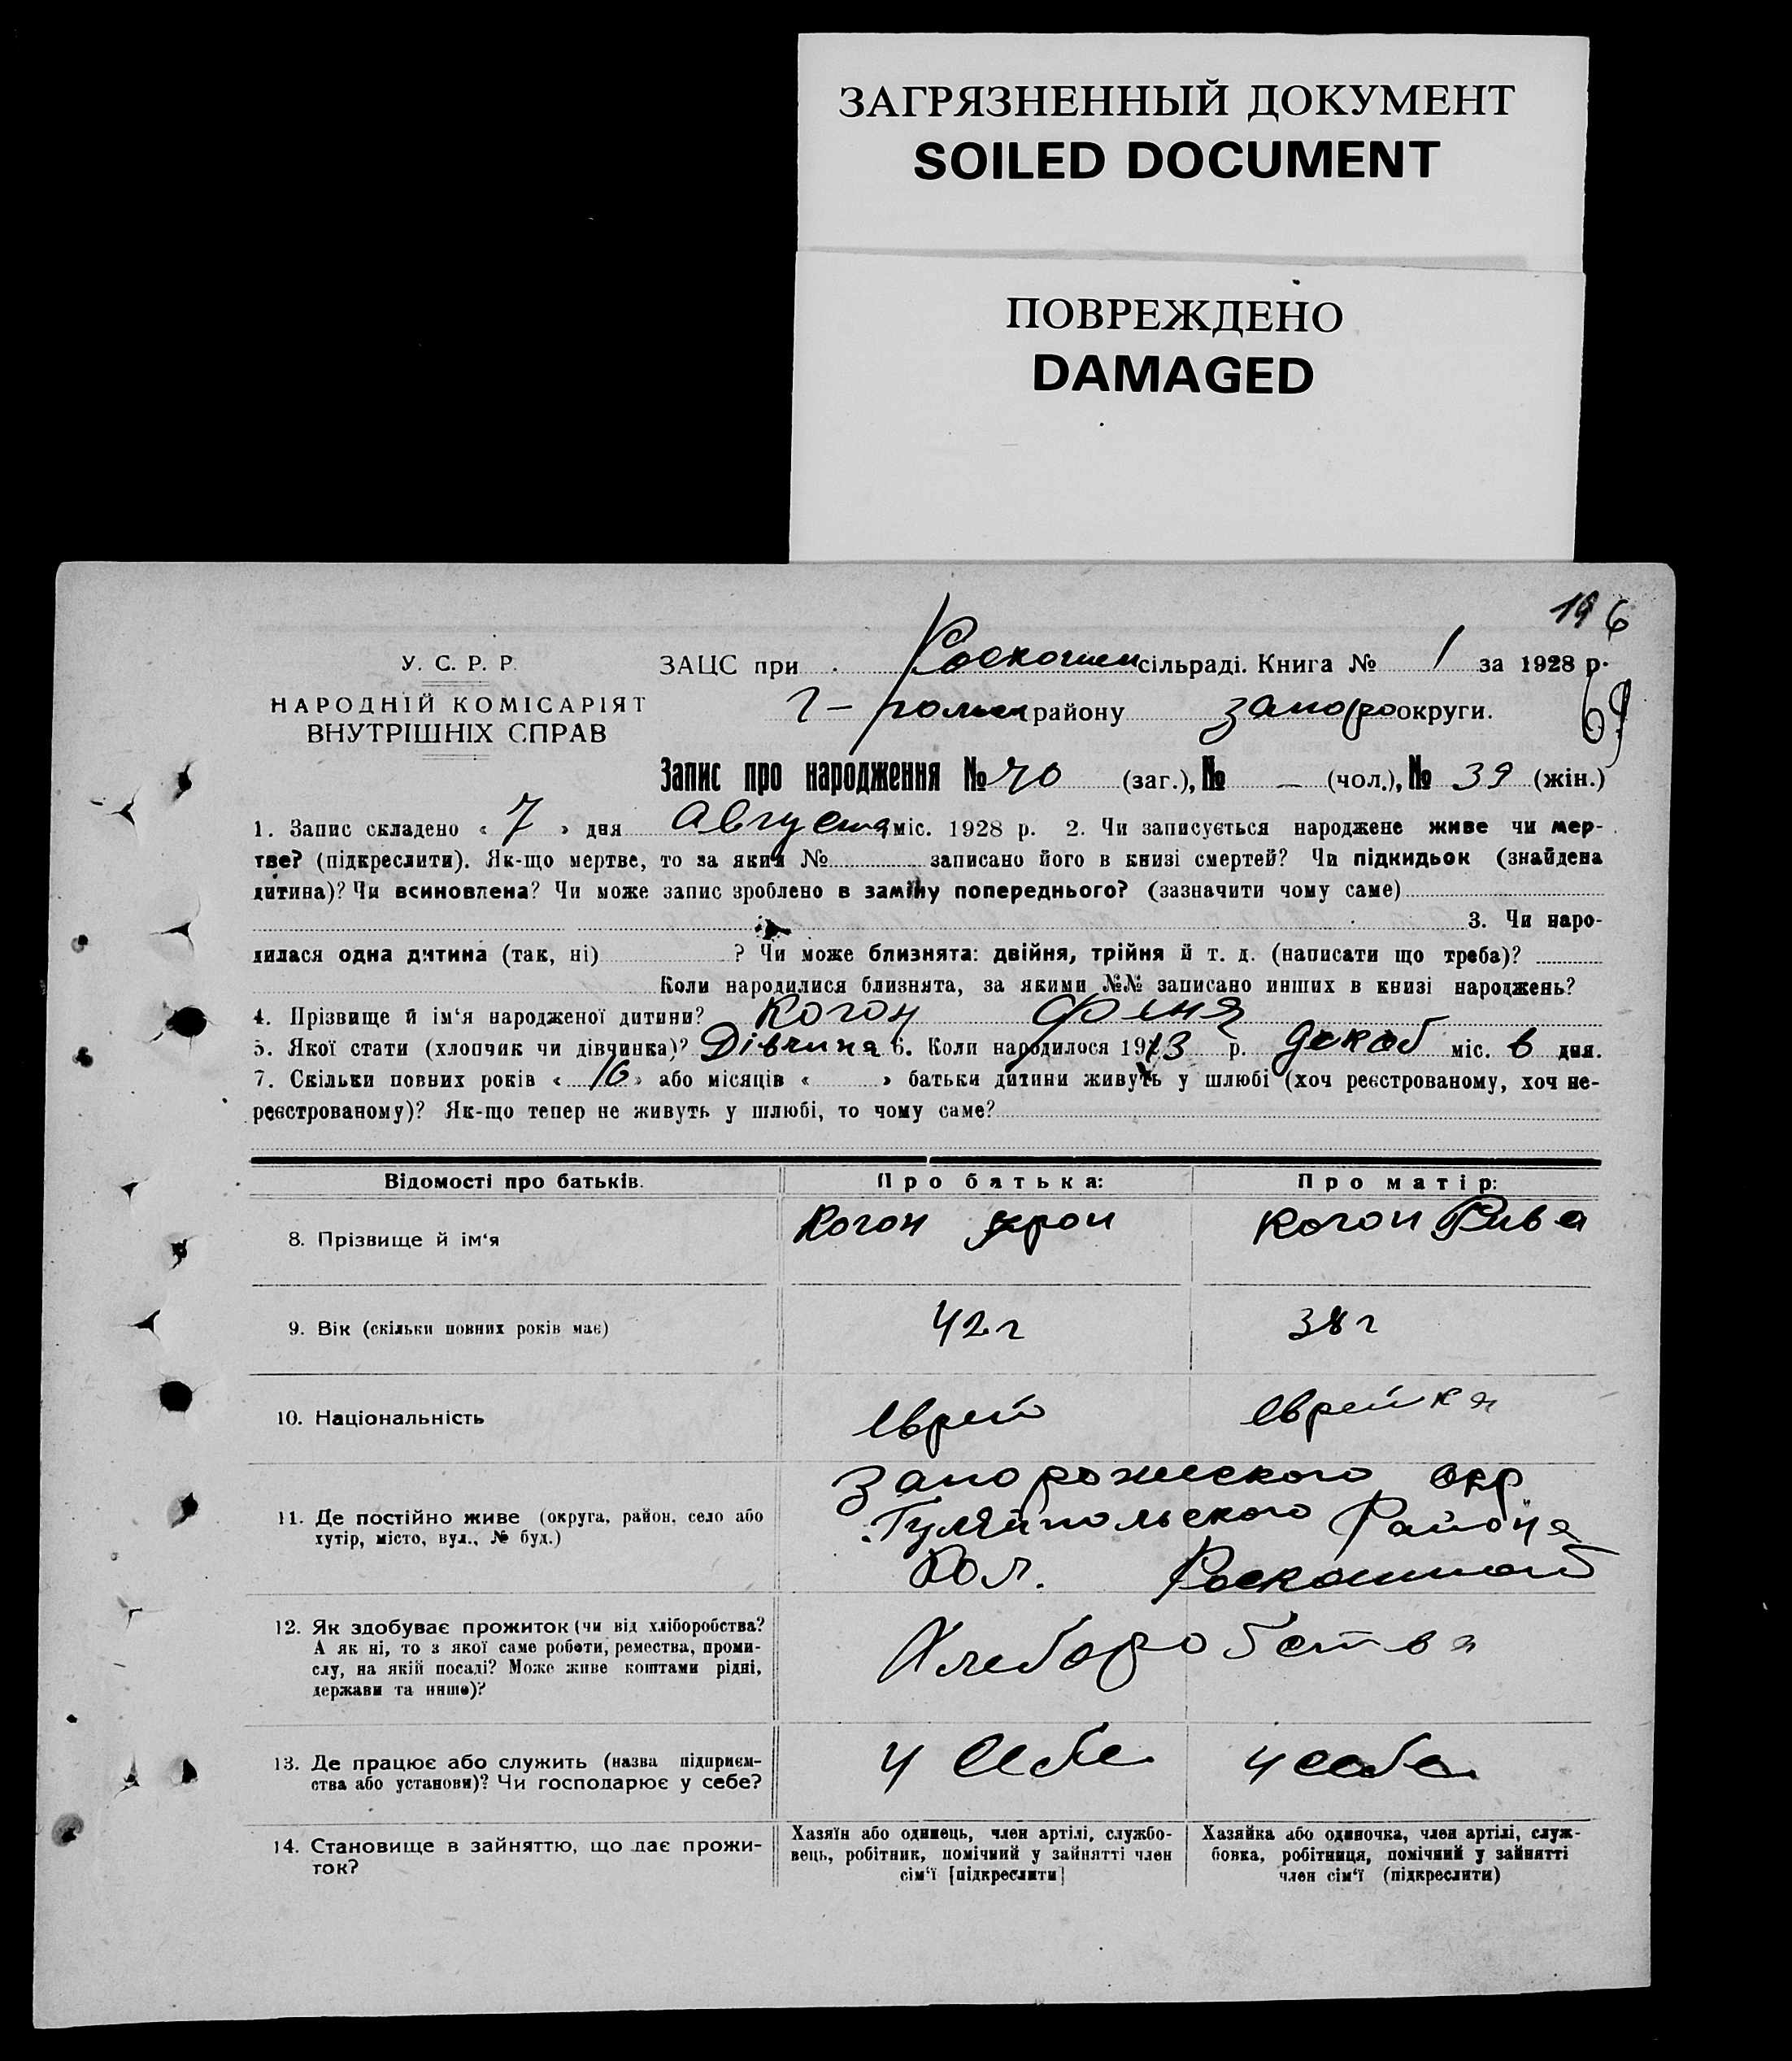 ЗАГРЯЗНЕННЫЙ ДОКУМЕНТ
SOILED DOCUMENT
ПОВРЕЖДЕНО
DAMAGED
У. С. Р. Р.
НАРОДНІЙ КОМІСАРІЯТ
ВНУТРІШНІХ СПРАВ
ЗАЦС при Роскошен сільраді. Книга № 1 за 1928 р.
Г-польск району Запоро округи.
69
Запис про народження № 70 (заг.), № — (чол.), № 39 (жін.)
1. Запис складено « 7 » дня Августа міс. 1928 р. 2. Чи записується народжене живе чи мер-
тве? (підкреслити). Як-що мертве, то за яким № записано його в книзі смертей? Чи підкидьок (знайдена
дитина)? Чи всиновлена? Чи може запис зроблено в заміну попереднього? (зазначити чому саме)
3. Чи наро-
дилася одна дитина (так, ні) ? Чи може близнята: двійня, трійня й т. д. (написати що треба)?
Коли народилися близнята, за якими №№ записано инших в книзі народжень?
4. Прізвище й ім‘я народженої дитини? Когон Феня
5. Якої стати (хлопчик чи дівчинка)? Дівчина 6. Коли народилося 1913 р. Декаб міс. 6 дня.
7. Скільки повних років « 16 » або місяців « » батьки дитини живуть у шлюбі (хоч реєстрованому, хоч не-
реєстрованому)? Як-що тепер не живуть у шлюбі, то чому саме?
Відомості про батьків. Про батька: Про матір:
8. Прізвище й ім‘я Когон Арон Когон Рива
9. Вік (скільки повних років має) 42 г 38 г
10. Національність Еврей Еврейка
Запорожского окр
11. Де постійно живе (округа, район, село або
хутір, місто, вул., № буд.)
Гуляйпольского Района
Кол. Роскошной
12. Як здобуває прожиток (чи від хліборобства?
А як ні, то з якої саме роботи, ремества, проми-
слу, на якій посаді? Може живе коштами рідні,
держави та инше)?
Хлеборобства
13. Де працює або служить (назва підприєм-
ства або установи)? Чи господарює у себе?
У себе У себе
14. Становище в зайняттю, що дає прожи-
ток?
Хазяїн або одинець, член артілі, службо-
вець, робітник, помічний у зайнятті член
сім‘ї [підкреслити]
Хазяйка або одиночка, член артілі, служ-
бовка, робітниця, помічний у зайнятті
член сім‘ї (підкреслити)